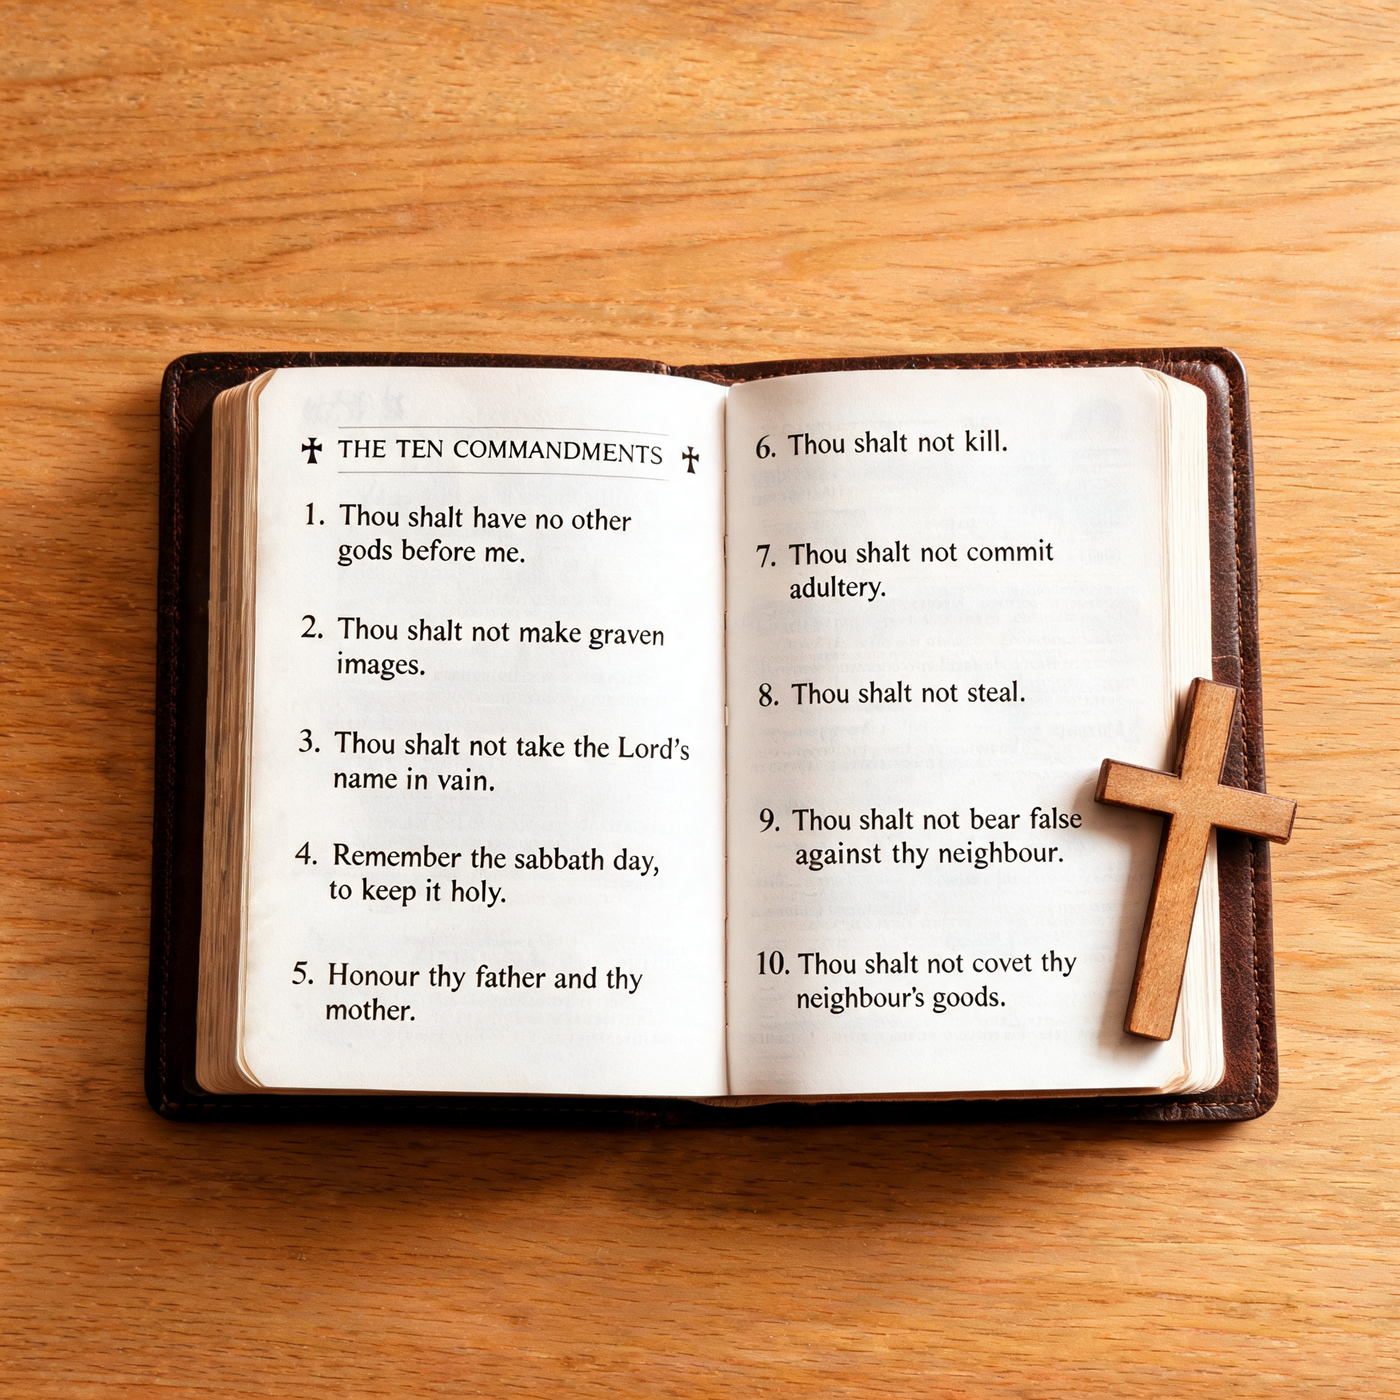 THE TEN COMMANDMENTS
1. Thou shalt have no other
gods before me.
2. Thou shalt not make graven
images.
3. Thou shalt not take the Lord's
name in vain.
4. Remember the sabbath day,
to keep it holy.
5. Honour thy father and thy
mother.
6. Thou shalt not kill.
7. Thou shalt not commit
adultery.
8. Thou shalt not steal.
9. Thou shalt not bear false
against thy neighbour.
10. Thou shalt not covet thy
neighbour's goods.